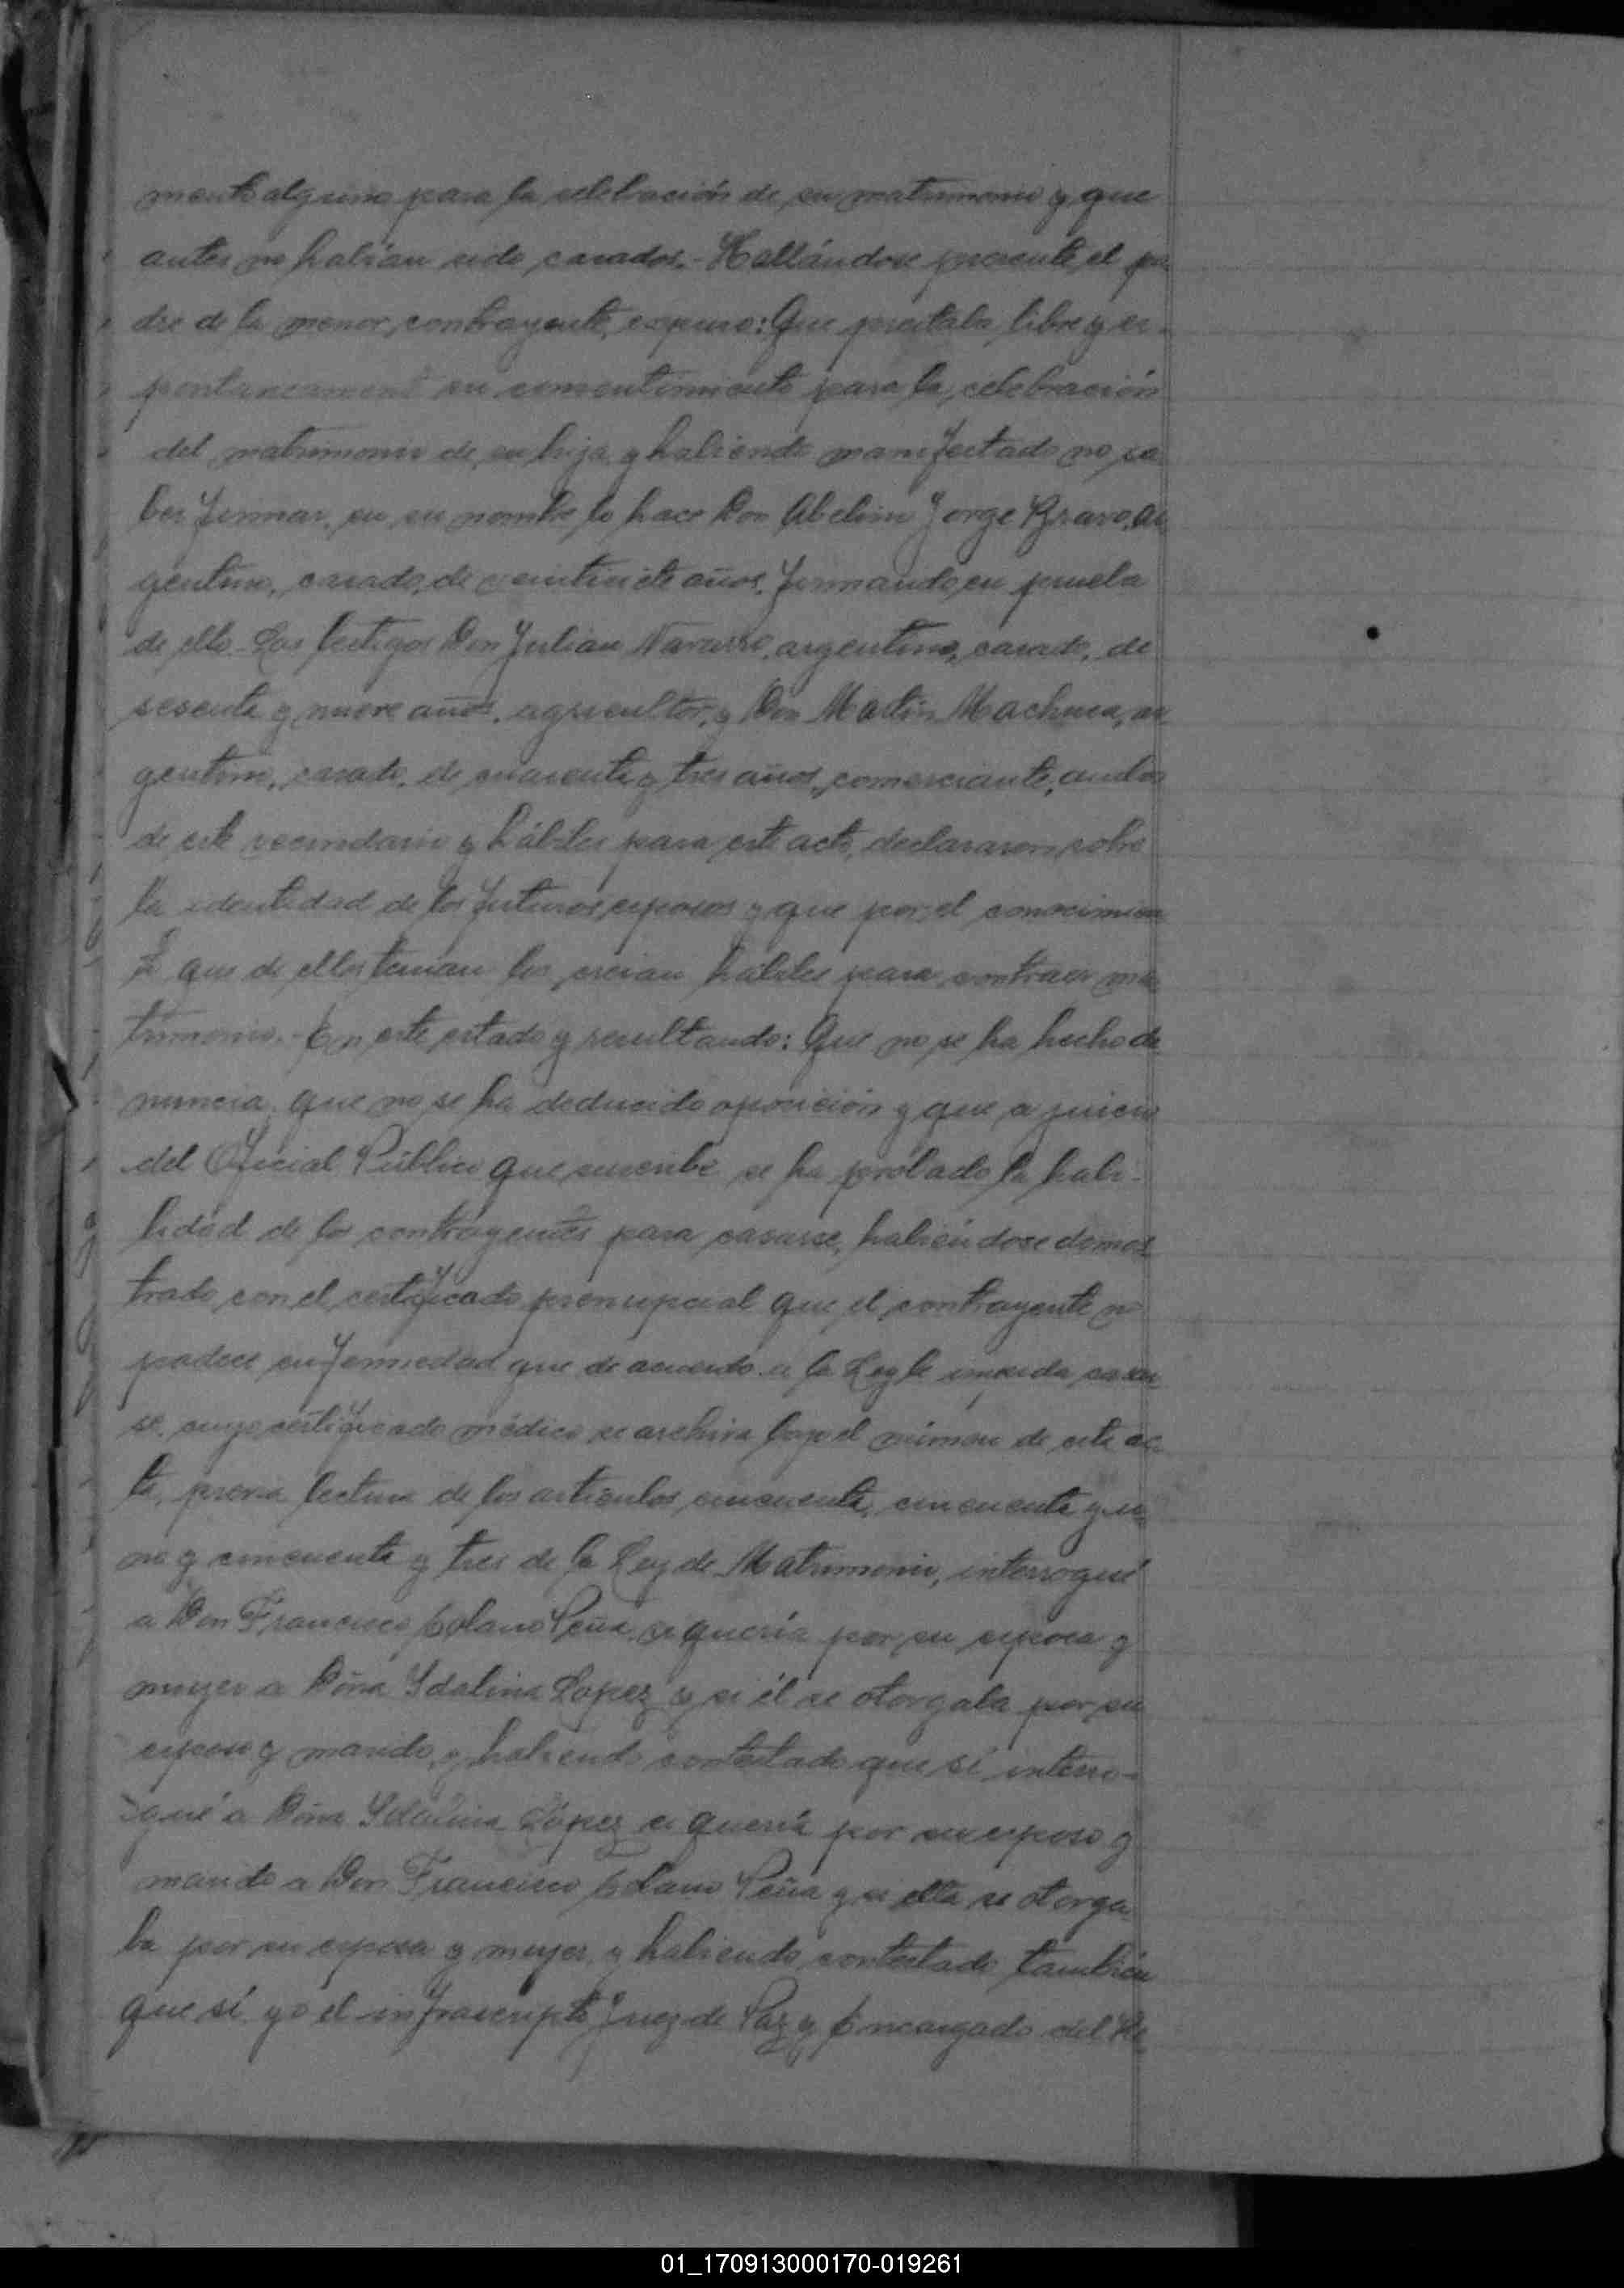 mento alguno para la celebración de su matrimonio y que
antes no habían sido casados.- Hallándose presente el pa-
dre de la menor contrayente, expuso: Que prestaba libre y es-
pontaneament su consentimiento para la celebración
del matrimonio de su hija y habiendo manifestado no sa
ber firmar, en su nombre lo hace Don Abelino Jorge Bravo, ar
gentino, casado, de veintisiete años, firmando en prueba
de ello.- Los testigos Don Julian Navarro, argentino, casado, de
sesenta y nueve años, agricultor, y Don Martin Machuca, ar
gentino, casado, de cuarenta y tres años, comerciante, ambos
de este vecindario y hábiles para este acto, declararon sobre
la identidad de los futuros esposos y que por el conocimien
to que de ellos tenían los creían hábiles para contraer ma
trimonio.- En este estado y resultando: Que no se ha hecho de
nuncia, que no se ha deducido oposición y que a juicio
del Oficial Público que suscribe se ha probado la habi-
lidad de los contrayentes para casarse, habiéndose demos
trado con el certificado prenupcial que el contrayente no
padece enfermedad que de acuerdo a la Ley le impida casar
se, cuyo certificado médico se archiva bajo el número de esta ac
ta, previa lectura de los artículos cincuenta, cincuenta y u-
no y cincuenta y tres de la Ley de Matrimonio, interrogué
a Don Francisco Solano Peña si quería por su esposa y
mujer a Doña Ydalina Lopez y si él se otorgaba por su
esposo y marido, y habiendo contestado que sí interro-
gué a Doña Ydalina López si quería por su esposo y
marido a Don Francisco Solano Peña y si ella se otorga
ba por su esposa y mujer, y habiendo contestado también
que sí yo el infrascripto Juez de Paz y Encargado del Re-
01_170913000170-019261